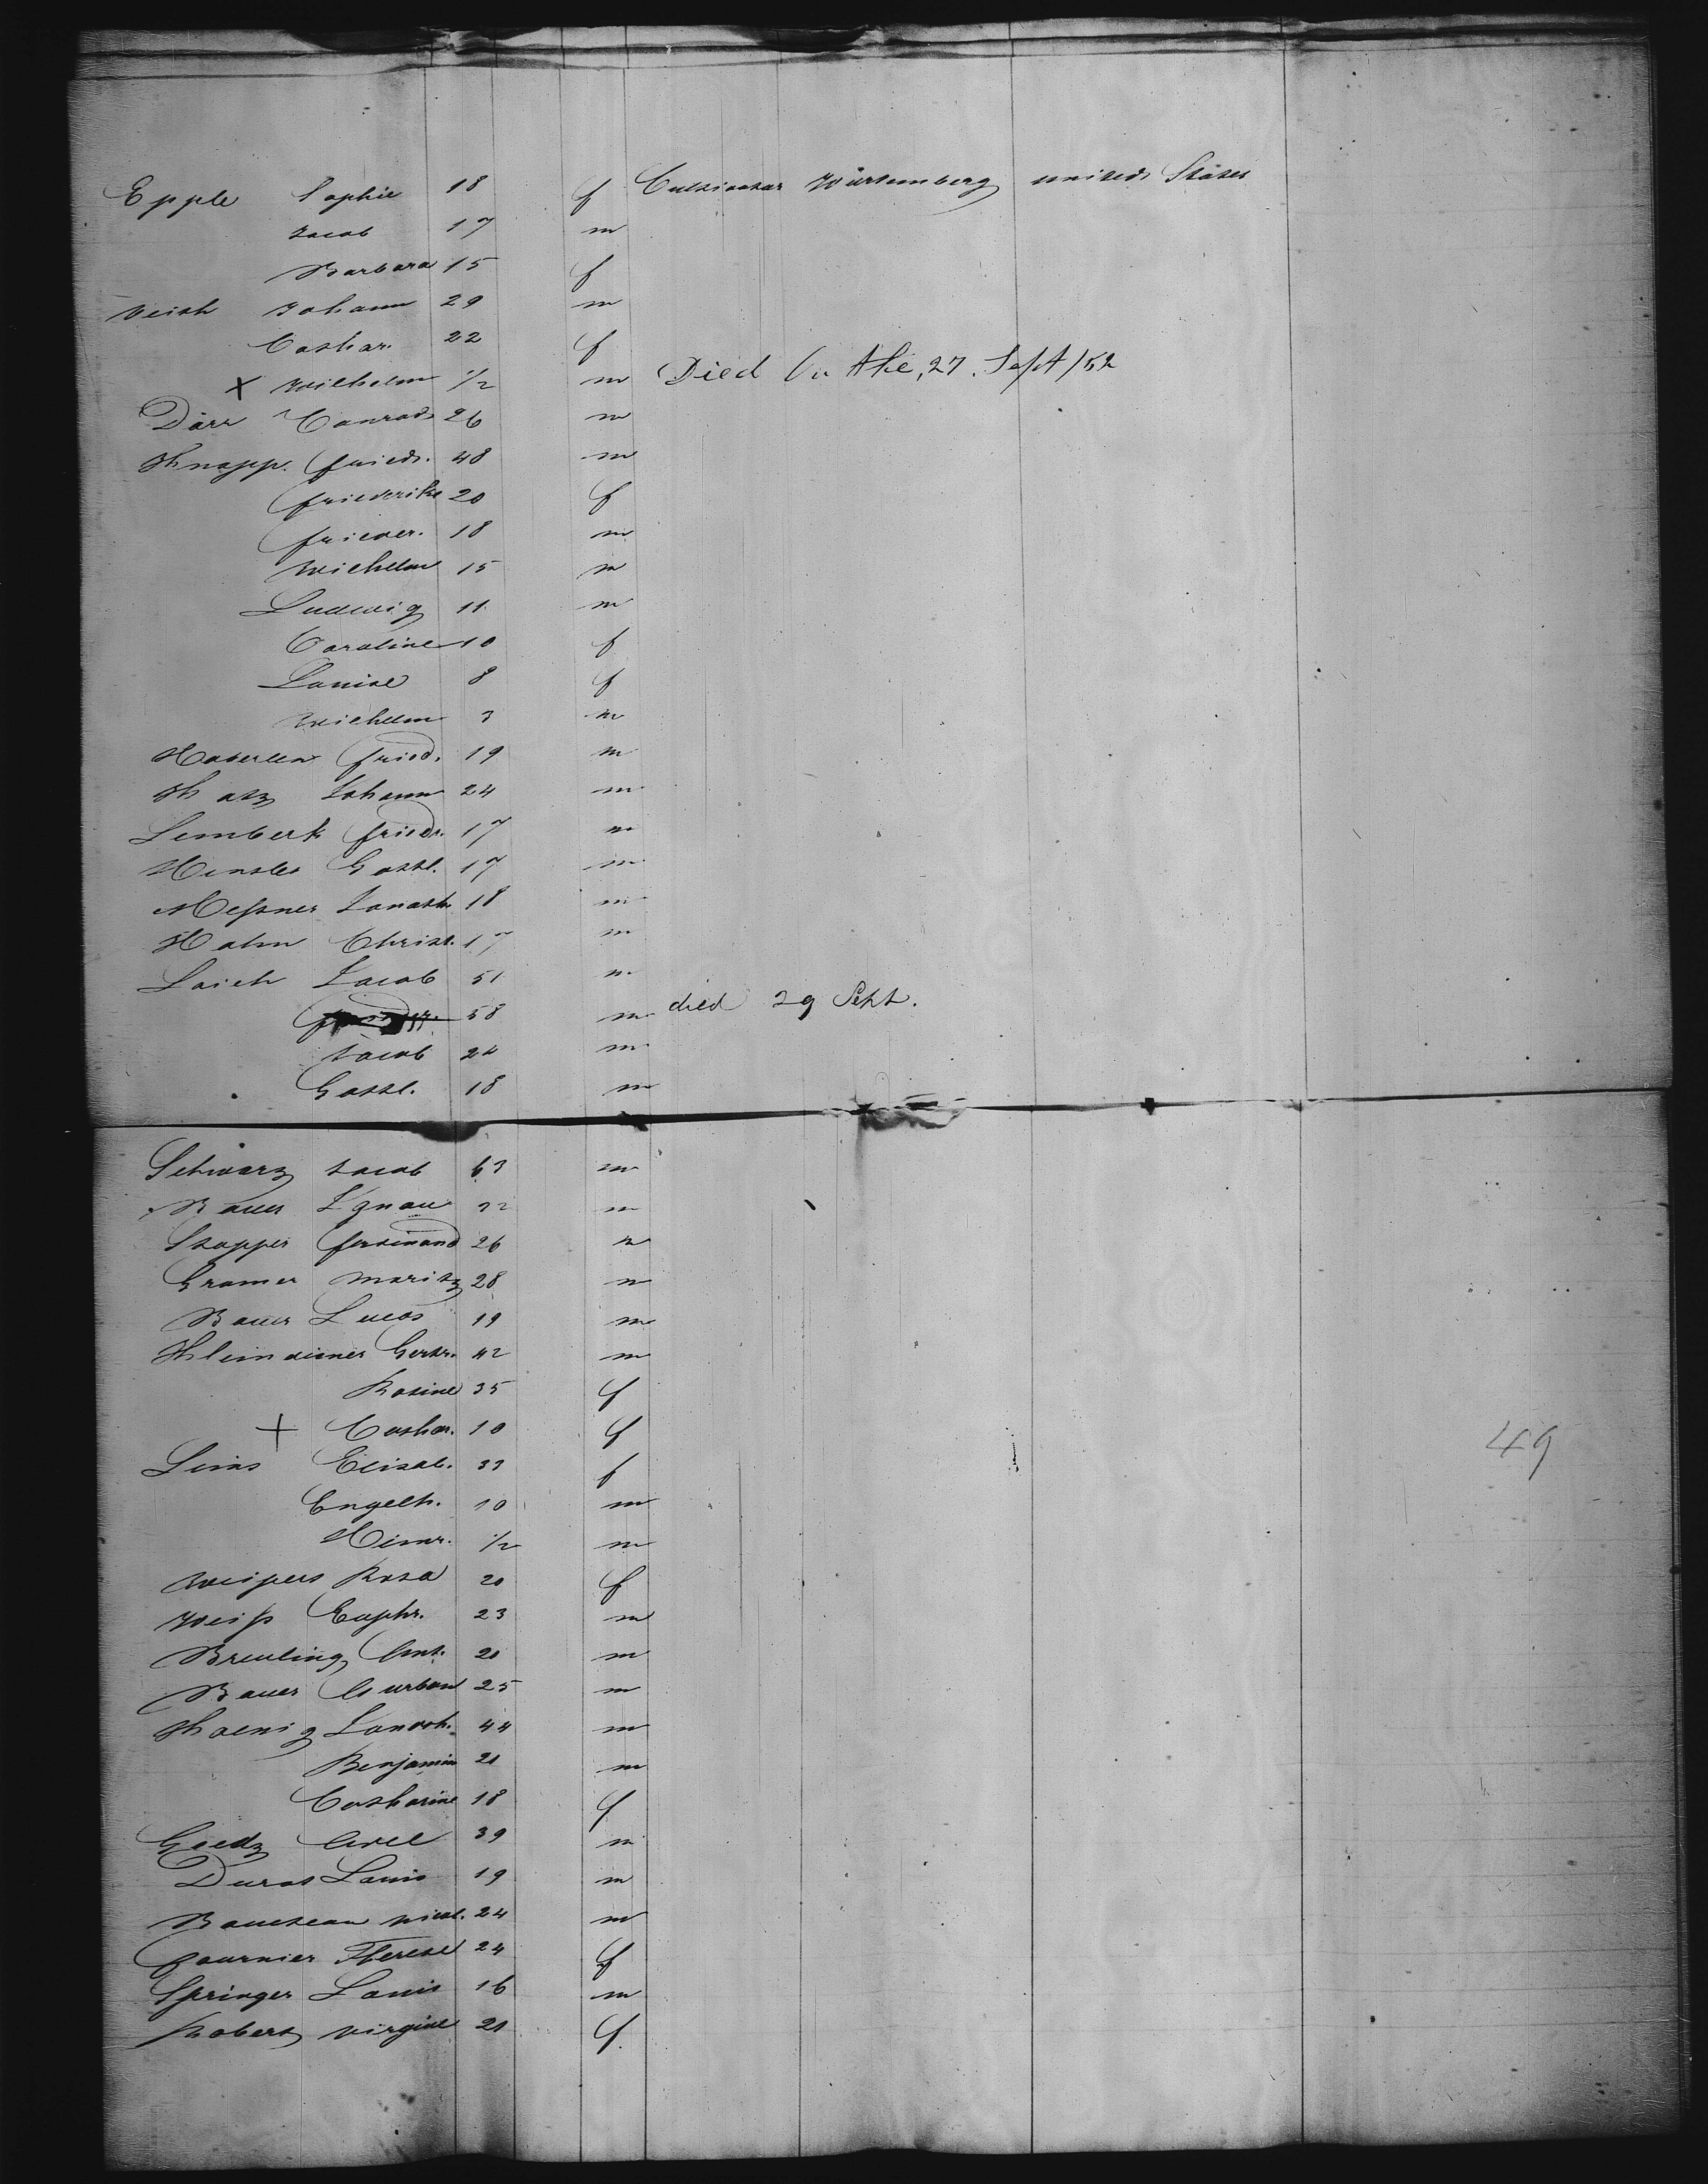 Epple Sophie 18 f Cultivator Würtemberg united States
Jacob 17 m
Barbara 15 f
Veith Johann 29 m
Cathar. 22 f
X Wilhelm 1/2 m Died On the, 27. Sept/52
Dörr Conrad 26 m
Knapp. Friedr. 48 m
Friederike 20 f
Frieder. 18 m
Wilhelm 15 m
Ludwig 11 m
Caroline 10 f
Louise 8 f
Wilhelm 3 m
Haberlen Fried. 19 m
Katz Johann 24 m
Lemberk Friedr. 17 m
Hensler Gottl. 17 m
Meßner Jonath 18 m
Hahn Christ. 17 m
Laich Jacob 51 m
58 m died 29 Sept.
Jacob 24 m
Gottl. 18 m
Schwarz Jacob 63 m
Bauer Ignau 22 m
Stopper Ferdinand 26 m
Gramer Moritz 28 m
Bauer Lucas 19 m
Kleindiener Gertr. 42 m
Rosine 35 f
+ Cathar. 10 f
Leins Elisab. 33 f
Engelh. 10 m
Heinr. 1/2 m
Weipert Rosa 20 f
Weiß Euphr. 23 m
Breuling Ant. 20 m
Bauer Urban 25 m
Koenig Landol. 44 m
Benjamin 21 m
Catharine 18 f
Goedz Axel 39 m
Duras Louis 19 m
Bauteau Nicol. 24 m
Fournier Therese 24 f
Springer Louis 16 m
Robert Virginie 21 f.
49